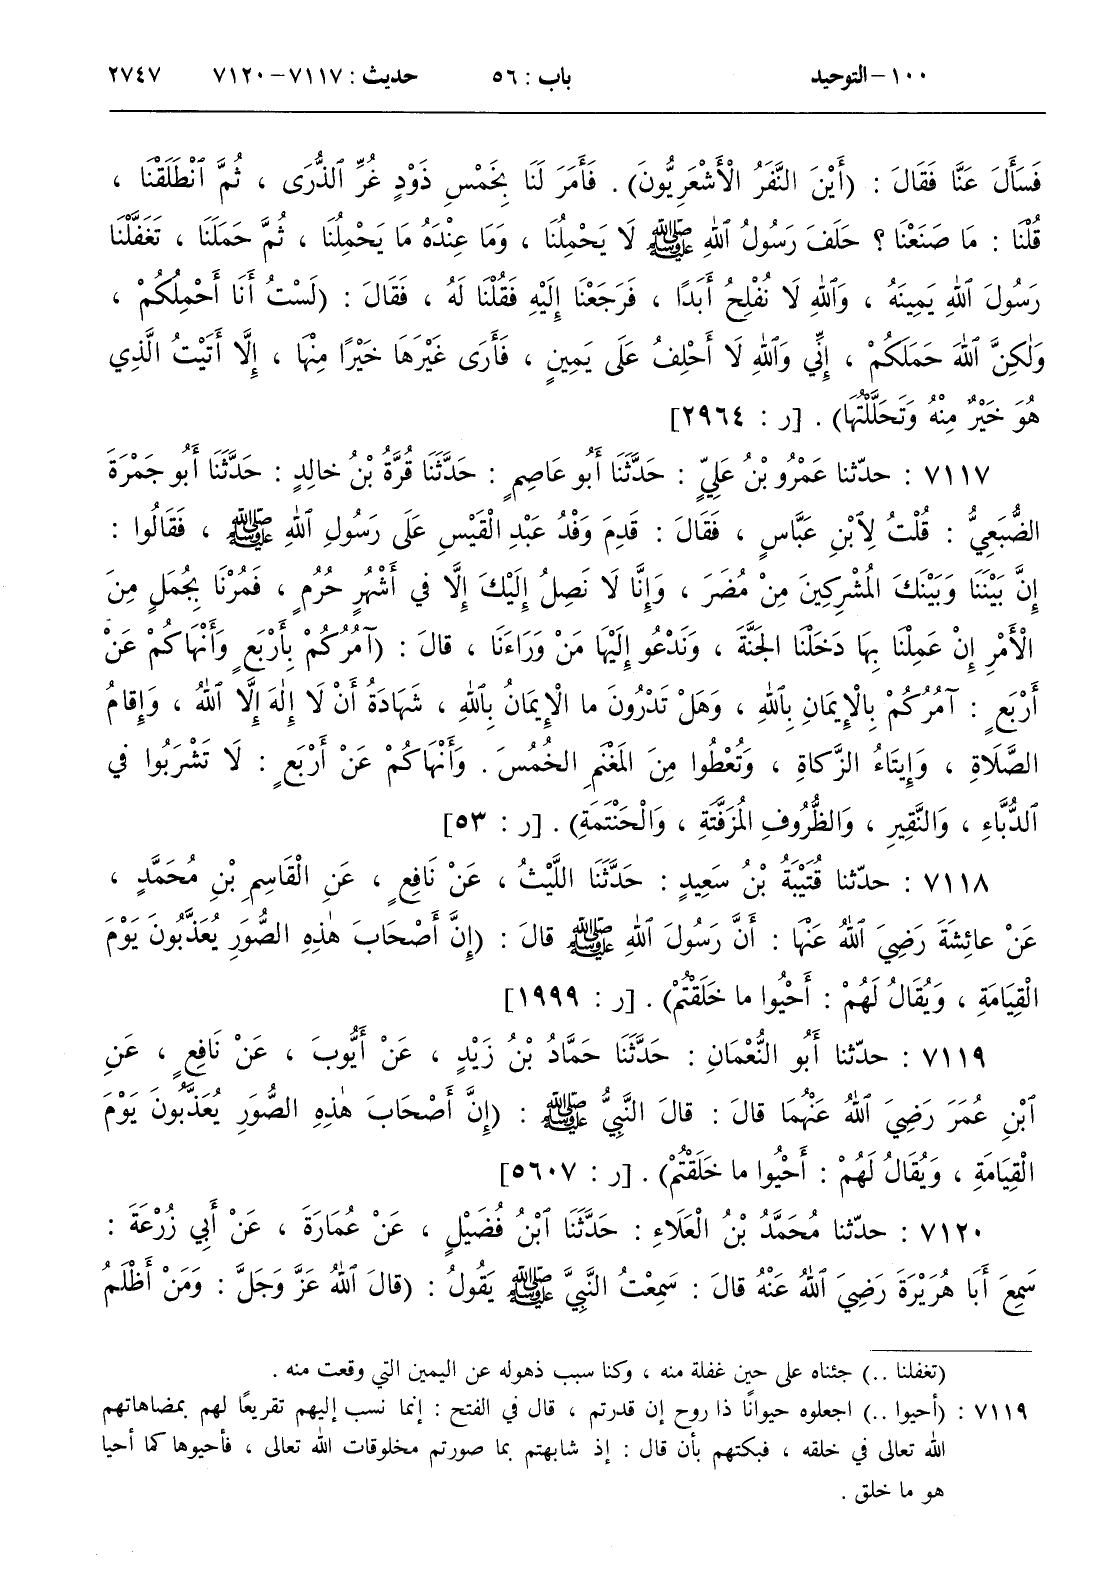 ١٠٠-التوحيد باب : ٥٦ حديث : ٧١١٧-٧١٢٠ ٢٧٤٧
فَسَأَلَ عَنَّا فَقَالَ : (أَيْنَ النَّفَرُ الْأَشْعَرِيُّونَ) . فَأَمَرَ لَنَا بِخَمْسِ ذَوْدٍ غُرِّ ٱلذُّرَى ، ثُمَّ ٱنْطَلَقْنَا ،
قُلْنَا : مَا صَنَعْنَا ؟ حَلَفَ رَسُولُ ٱللهِ ﷺ لَا يَحْمِلُنَا ، وَمَا عِنْدَهُ مَا يَحْمِلُنَا ، ثُمَّ حَمَلَنَا ، تَغَفَّلْنَا
رَسُولَ ٱللهِ يَمِينَهُ ، وَٱللهِ لَا نُفْلِحُ أَبَدًا ، فَرَجَعْنَا إِلَيْهِ فَقُلْنَا لَهُ ، فَقَالَ : (لَسْتُ أَنَا أَحْمِلُكُمْ ،
وَلٰكِنَّ ٱللهَ حَمَلَكُمْ ، إِنِّي وَٱللهِ لَا أَحْلِفُ عَلَى يَمِينٍ ، فَأَرَى غَيْرَهَا خَيْرًا مِنْهَا ، إِلَّا أَتَيْتُ الَّذِي
هُوَ خَيْرٌ مِنْهُ وَتَحَلَّلْتُهَا) . [ر : ٢٩٦٤]
٧١١٧ : حدّثنا عَمْرُو بْنُ عَلِيٍّ : حَدَّثَنَا أَبُو عَاصِمٍ : حَدَّثَنَا قُرَّةُ بْنُ خالِدٍ : حَدَّثَنَا أَبُو جَمْرَةَ
الضُّبَعِيُّ : قُلْتُ لِٱبْنِ عَبَّاسٍ ، فَقَالَ : قَدِمَ وَفْدُ عَبْدِ الْقَيْسِ عَلَى رَسُولِ ٱللهِ ﷺ ، فَقَالُوا :
إِنَّ بَيْنَنَا وَبَيْنَكَ المُشْرِكِينَ مِنْ مُضَرَ ، وَإِنَّا لَا نَصِلُ إِلَيْكَ إِلَّا فِي أَشْهُرٍ حُرُمٍ ، فَمُرْنَا بِجُمَلٍ مِنَ
الْأَمْرِ إِنْ عَمِلْنَا بِهَا دَخَلْنَا الجَنَّةَ ، وَنَدْعُو إِلَيْهَا مَنْ وَرَاءَنَا ، قالَ : (آمُرُكُمْ بِأَرْبَعٍ وَأَنْهَاكُمْ عَنْ
أَرْبَعٍ : آمُرُكُمْ بِالْإِيمَانِ بِٱللهِ ، وَهَلْ تَدْرُونَ ما الْإِيمَانُ بِٱللهِ ، شَهَادَةُ أَنْ لَا إِلٰهَ إِلَّا ٱللهُ ، وَإِقامُ
الصَّلَاةِ ، وَإِيتَاءُ الزَّكاةِ ، وَتُعْطُوا مِنَ المَغْنَمِ الخُمُسَ . وَأَنْهَاكُمْ عَنْ أَرْبَعٍ : لَا تَشْرَبُوا فِي
ٱلدُّبَّاءِ ، وَالنَّقِيرِ ، وَالظُّرُوفِ المُزَفَّتَةِ ، وَالْحَنْتَمَةِ) . [ر : ٥٣]
٧١١٨ : حدّثنا قُتَيْبَةُ بْنُ سَعِيدٍ : حَدَّثَنَا اللَّيْثُ ، عَنْ نَافِعٍ ، عَنِ الْقَاسِمِ بْنِ مُحَمَّدٍ ،
عَنْ عائِشَةَ رَضِيَ ٱللهُ عَنْهَا : أَنَّ رَسُولَ ٱللهِ ﷺ قالَ : (إِنَّ أَصْحَابَ هٰذِهِ الصُّوَرِ يُعَذَّبُونَ يَوْمَ
الْقِيَامَةِ ، وَيُقَالُ لَهُمْ : أَحْيُوا ما خَلَقْتُمْ) . [ر : ١٩٩٩]
٧١١٩ : حدّثنا أَبُو النُّعْمَانِ : حَدَّثَنَا حَمَّادُ بْنُ زَيْدٍ ، عَنْ أَيُّوبَ ، عَنْ نَافِعٍ ، عَنِ
ٱبْنِ عُمَرَ رَضِيَ ٱللهُ عَنْهُمَا قالَ : قالَ النَّبِيُّ ﷺ : (إِنَّ أَصْحَابَ هٰذِهِ الصُّوَرِ يُعَذَّبُونَ يَوْمَ
الْقِيَامَةِ ، وَيُقَالُ لَهُمْ : أَحْيُوا ما خَلَقْتُمْ) . [ر : ٥٦٠٧]
٧١٢٠ : حدّثنا مُحَمَّدُ بْنُ الْعَلَاءِ : حَدَّثَنَا ٱبْنُ فُضَيْلٍ ، عَنْ عُمَارَةَ ، عَنْ أَبِي زُرْعَةَ :
سَمِعَ أَبَا هُرَيْرَةَ رَضِيَ ٱللهُ عَنْهُ قالَ : سَمِعْتُ النَّبِيَّ ﷺ يَقُولُ : (قالَ ٱللهُ عَزَّ وَجَلَّ : وَمَنْ أَظْلَمُ
(تغفلنا ..) جئناه على حين غفلة منه ، وكنا سبب ذهوله عن اليمين التي وقعت منه .
٧١١٩ : (أحيوا ..) اجعلوه حيوانًا ذا روح إن قدرتم ، قال في الفتح : إنما نسب إليهم تقريعًا لهم بمضاهاتهم
الله تعالى في خلقه ، فبكتهم بأن قال : إذ شابهتم بما صورتم مخلوقات الله تعالى ، فأحيوها كما أحيا
هو ما خلق .